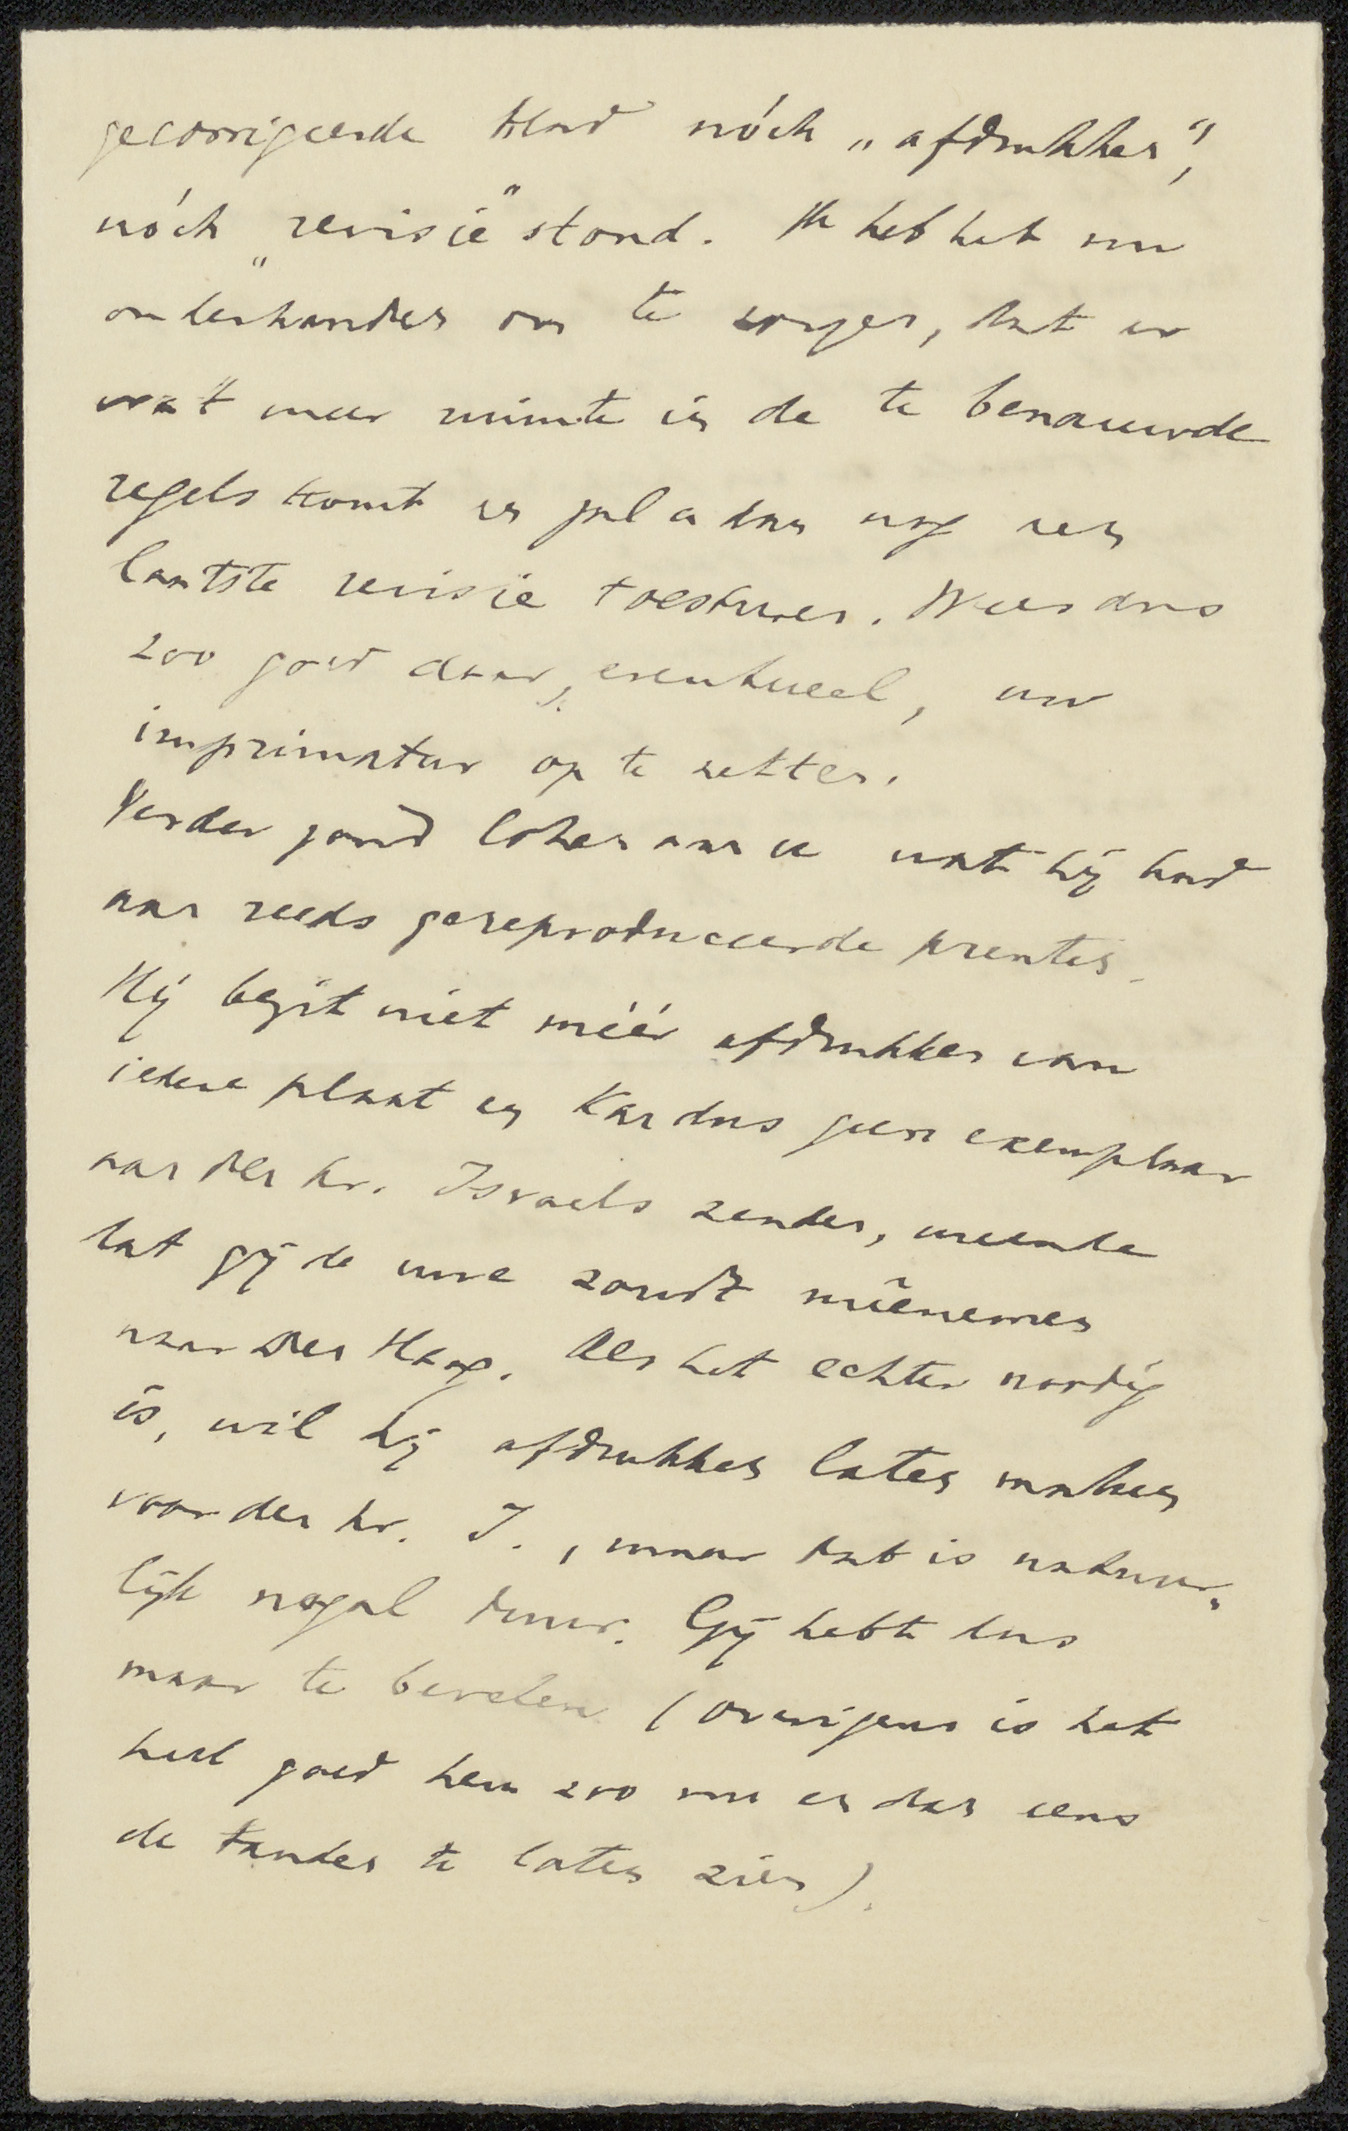 gecorrigeerde blad nóch „afdrukken",
nóch „revisie" stond. Ik heb het nu
onderhanden om te zorgen, dat er
wat meer ruimte in de te benauwde
regels komt en zal u dan nog een
laatste revisie toesturen. Wees dus
zoo goed daar, eventueel, uw
imprimatur op te zetten.
Verder zond Cohen aan u wat hij had
aan reeds gereproduceerde prenten.
Hij bezit niet méér afdrukken van
iedere plaat en kan dus geen exemplaar
aan den hr. Israels zenden, meende
dat gij de uwe zoudt meênemen
naar Den Haag. Als het echter noodig
is, wil hij afdrukken laten maken
voor den hr. I., maar dat is natuur-
lijk nogal duur. Gij hebt dus
maar te bevelen (overigens is het
heel goed hem zoo nu en dan eens
de tanden te laten zien).